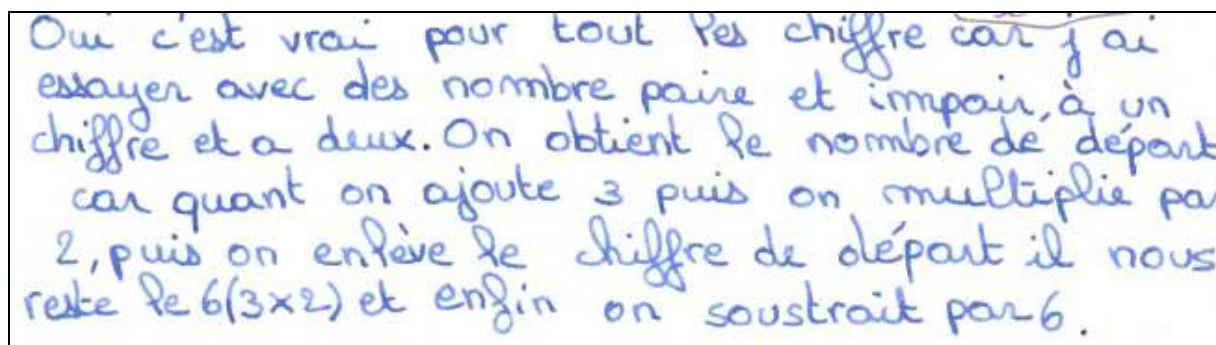 Oui c'est vrai pour tout les chiffre car j ai
essayer avec des nombre paire et impair, à un
chiffre et a deux. On obtient le nombre de départ
car quant on ajoute 3 puis on multiplie pa
2, puis on enlève le chiffre de départ il nous
reste le 6(3x2) et enfin on soustrait par 6.